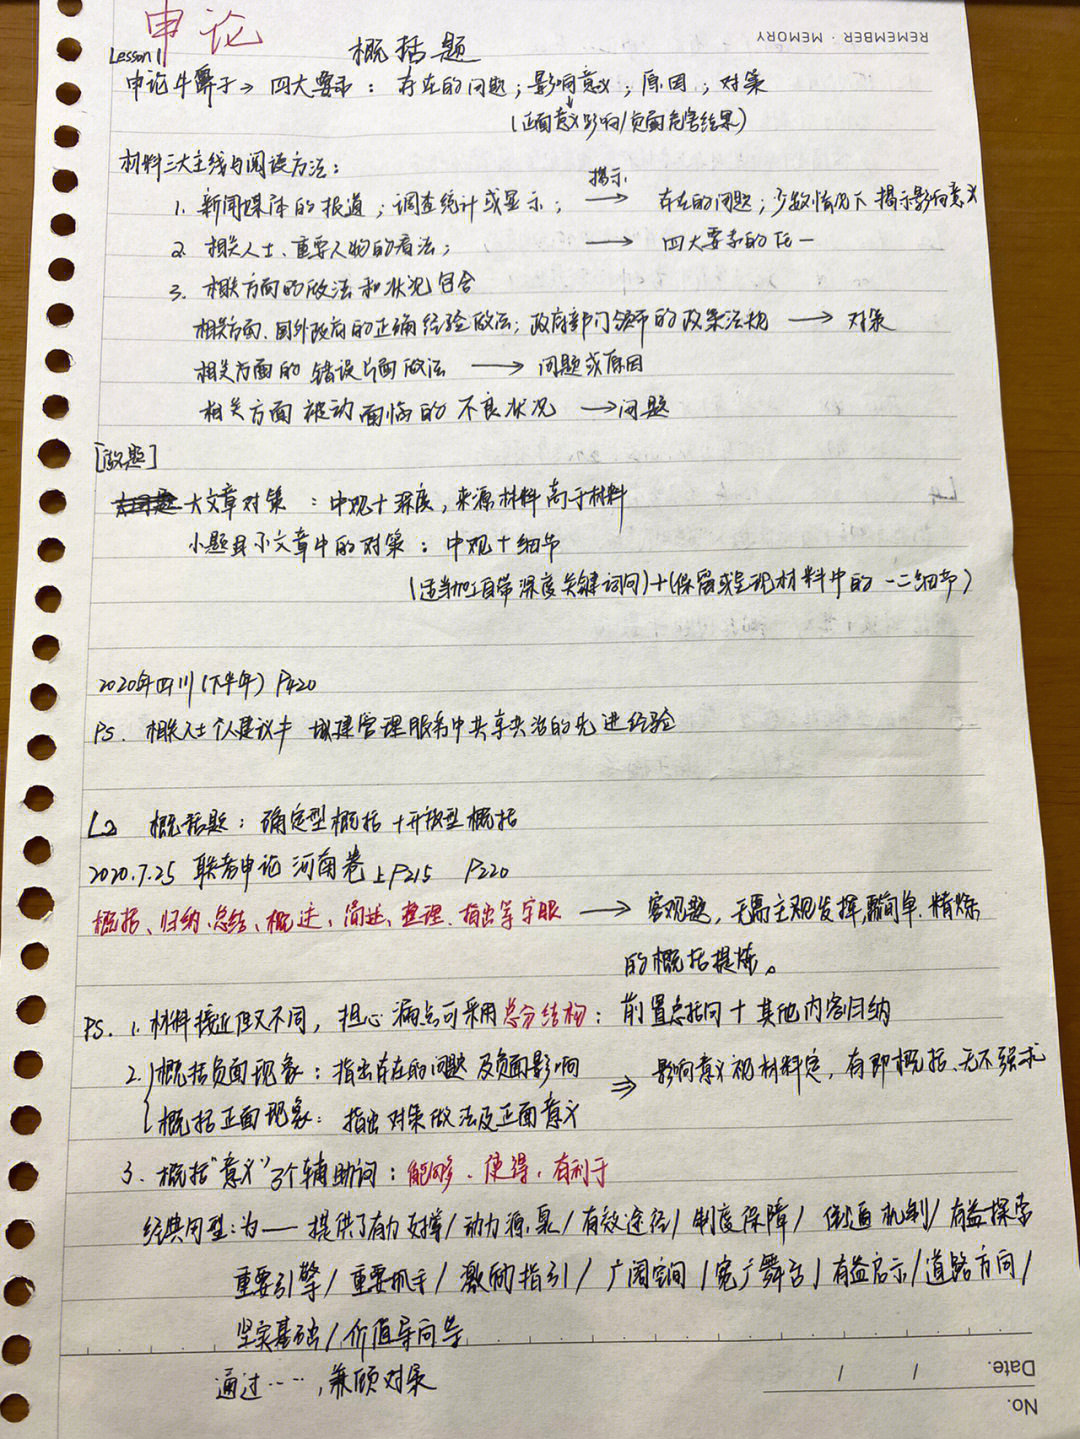 申论
REMEMBER · MEMORY
Lesson 1 概括题
申论牛鼻子→ 四大要素：存在的问题；影响意义；原因；对策
（正面意义影响/负面危害结果）
材料三大主线与阅读方法：
1. 新闻媒体的报道；调查统计或显示； 揭示→ 存在的问题；少数情况下揭示影响意义
2. 相关人士、重要人物的看法； → 四大要素的任一
3. 相关方面的做法和状况包含
相关方面、国外政府的正确经验做法；政府部门领导的政策法规 → 对策
相关方面的错误片面做法 → 问题或原因
相关方面被动面临的不良状况 →问题
[做题]
大文章对策：中观+深度，来源材料高于材料
小题目小文章中的对策：中观+细节
（适当加工自带深度关键词句）+（保留或呈现材料中的一二细节）
2020年四川（下半年）P420
PS. 相关人士个人建议中 城建管理服务中共享共治的先进经验
L2 概括题：确定型概括+开放型概括
2020.7.25 联考申论 河南卷 上P215 P220
概括、归纳、总结、概述、简述、整理、指出等字眼 → 客观题，无需主观发挥，需简单、精炼
的概括提炼。
PS. 1. 材料接近但又不同，担心漏点可采用总分结构：前置总括句+其他内容归纳
2. 概括负面现象：指出存在的问题及负面影响 ⇒ 影响意义视材料定，有即概括、无不强求
概括正面现象：指出对策做法及正面意义
3. 概括"意义"3个辅助词：能够、使得、有利于
经典句型：为— 提供了有力支撑/动力源泉/有效途径/制度保障/倒逼机制/有益探索
重要引擎/重要抓手/激励指引/广阔空间/宽广舞台/有益启示/道路方向/
坚实基础/价值导向等
通过……，兼顾对策
Date. / /
No.